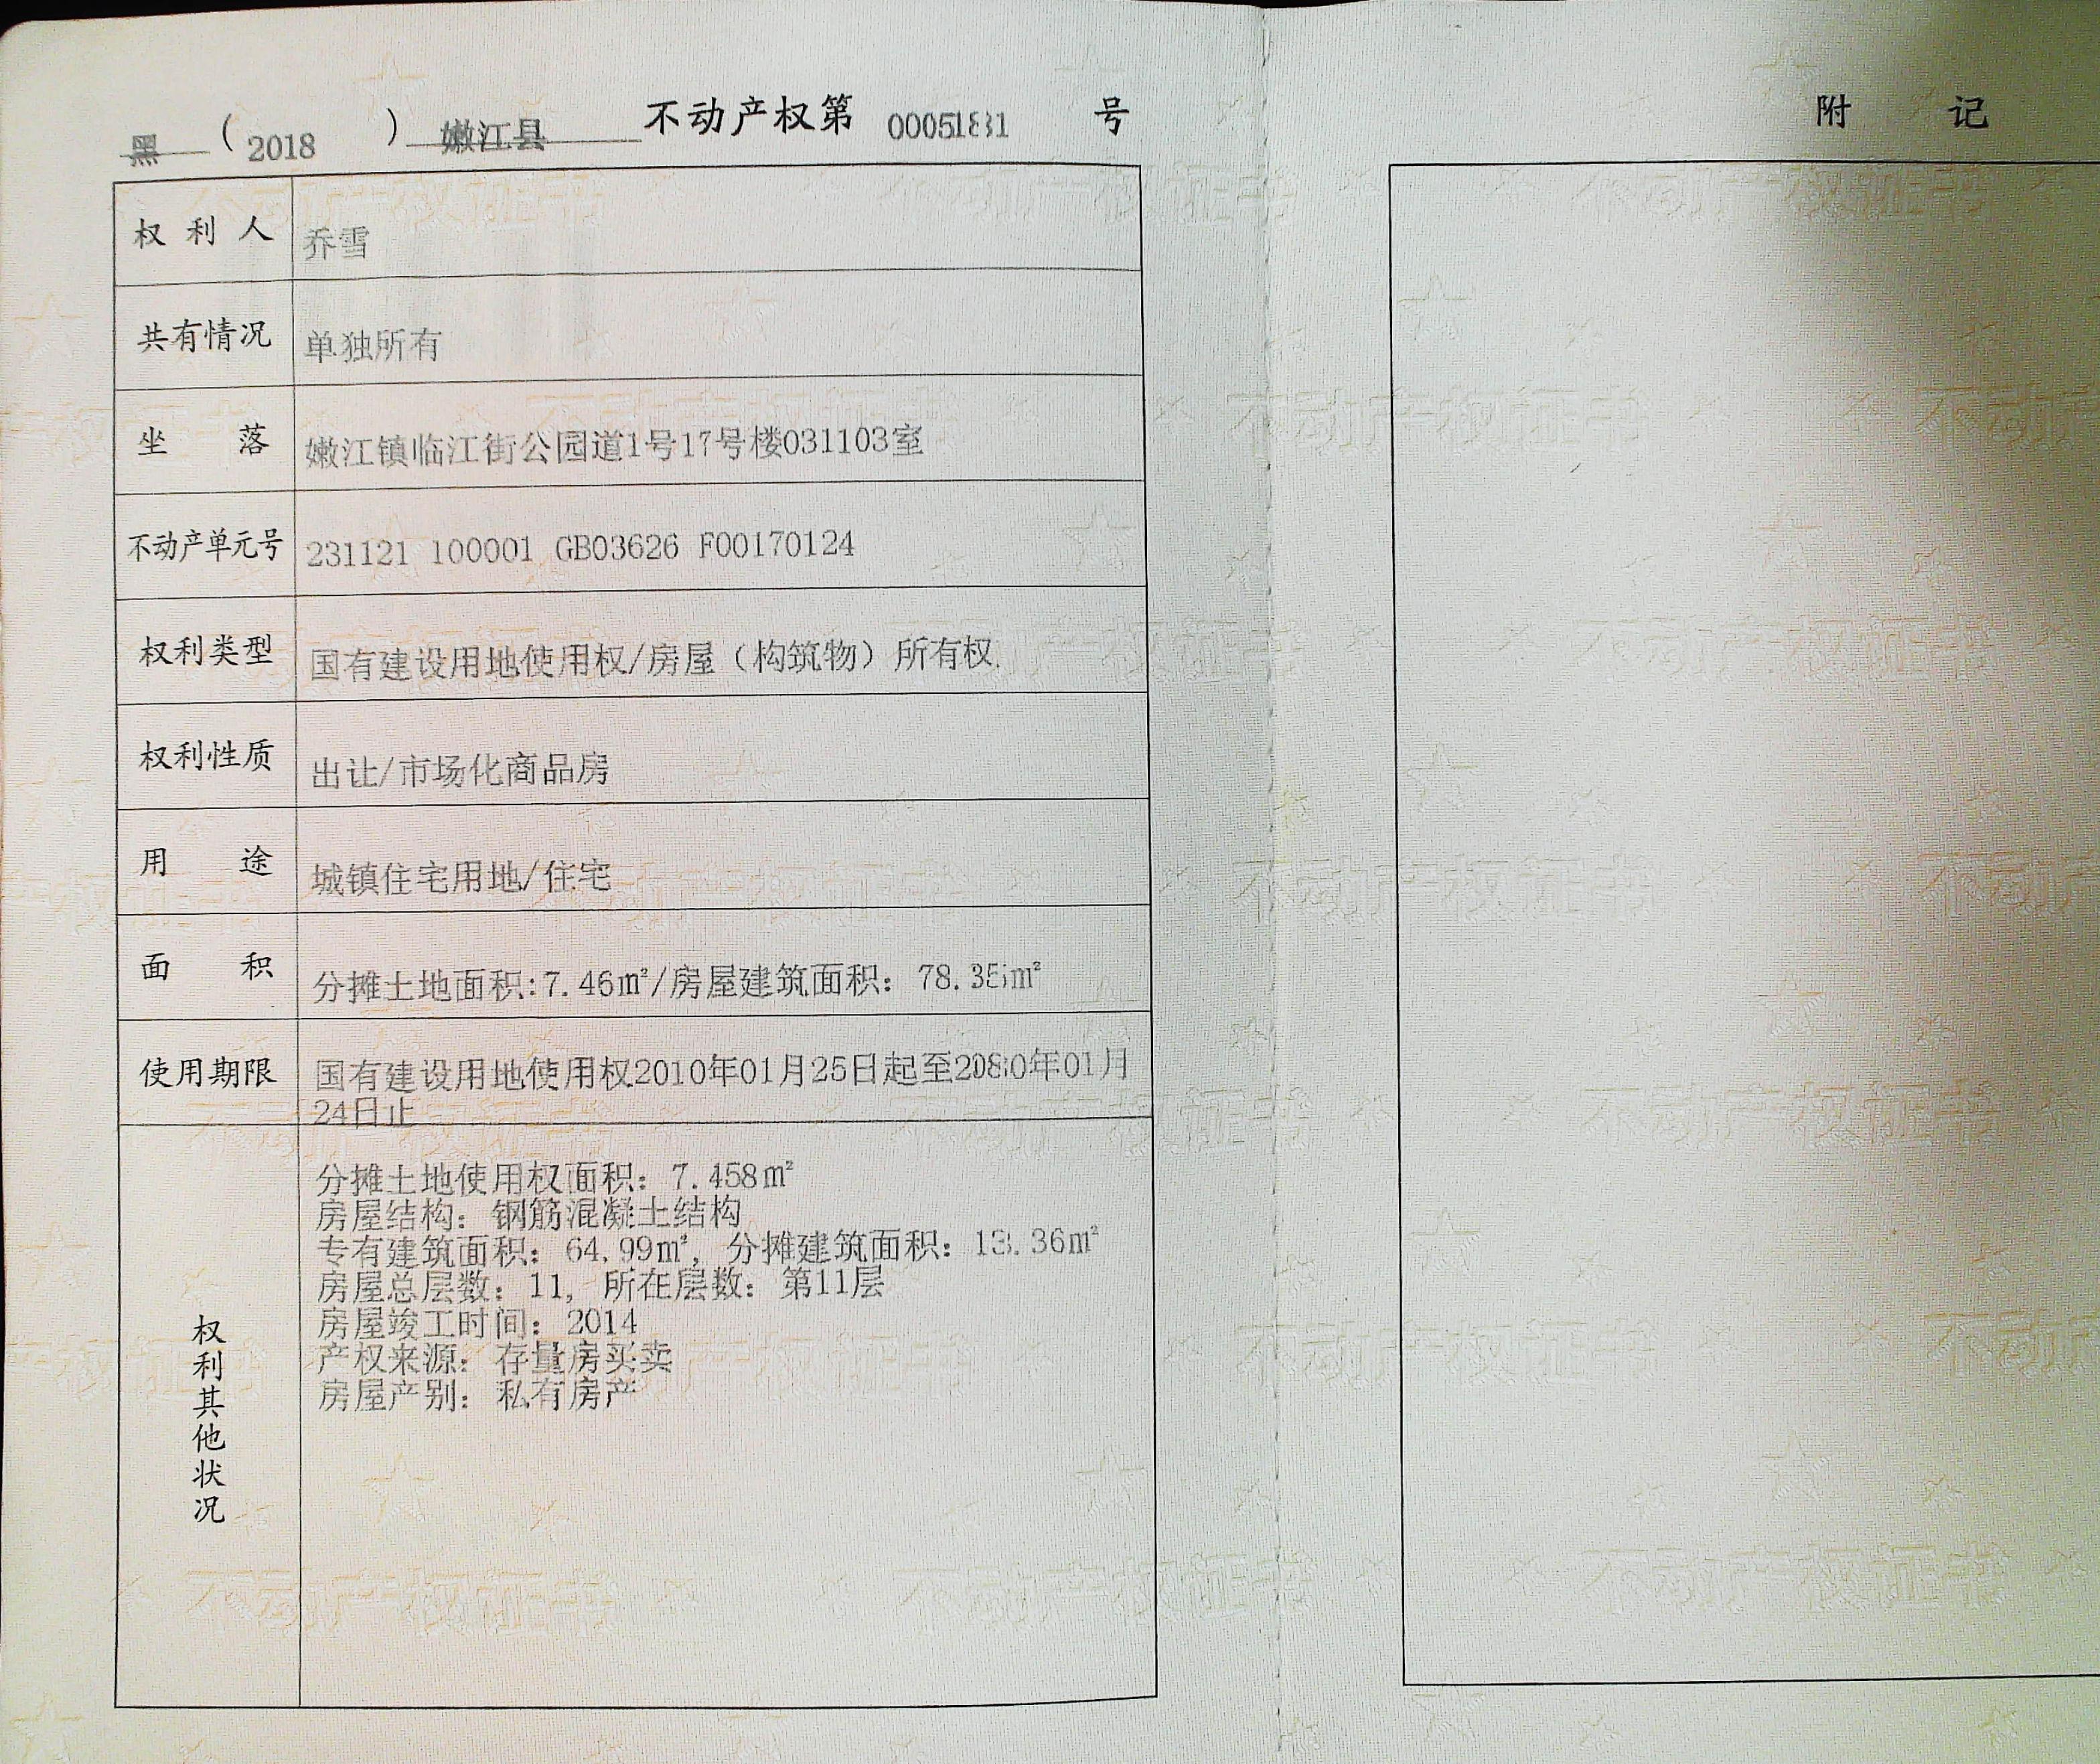 黑（2018）嫩江县不动产权第00051881号
权利人 乔雪
共有情况 单独所有
坐落 嫩江镇临江街公园道1号17号楼031103室
不动产单元号 231121 100001 GB03626 F00170124
权利类型 国有建设用地使用权/房屋（构筑物）所有权
权利性质 出让/市场化商品房
用途 城镇住宅用地/住宅
面积 分摊土地面积:7.46㎡/房屋建筑面积：78.35㎡
使用期限 国有建设用地使用权2010年01月25日起至2080年01月
24日止
权利其他状况
分摊土地使用权面积：7.458㎡
房屋结构：钢筋混凝土结构
专有建筑面积：64.99㎡，分摊建筑面积：13.36㎡
房屋总层数：11，所在层数：第11层
房屋竣工时间：2014
产权来源：存量房买卖
房屋产别：私有房产
附记